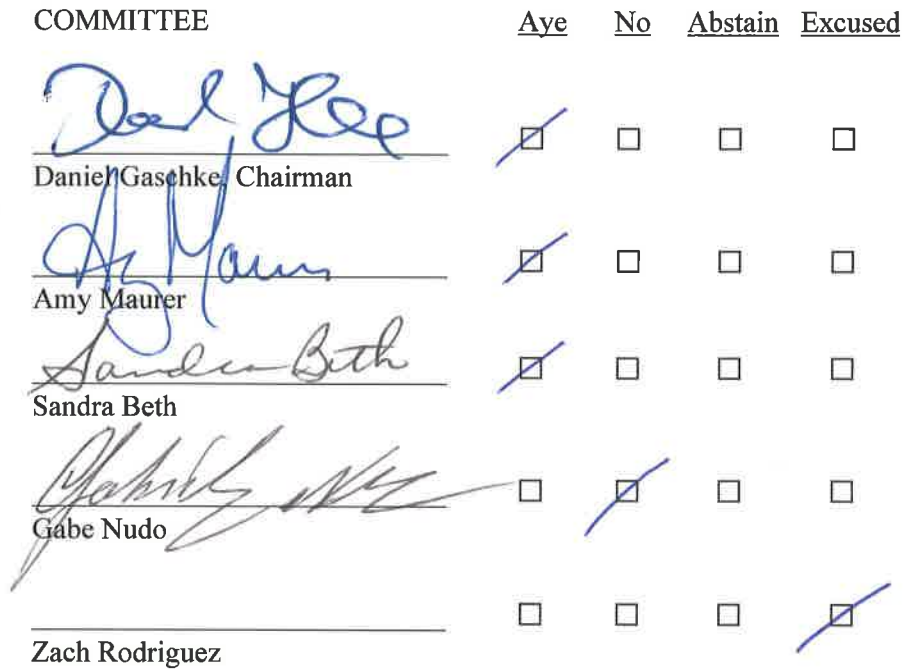 COMMITTEE Aye No Abstain Excused
Daniel Gaschke, Chairman
Amy Maurer
Sandra Beth
Sandra Beth
Gabe Nudo
Zach Rodriguez